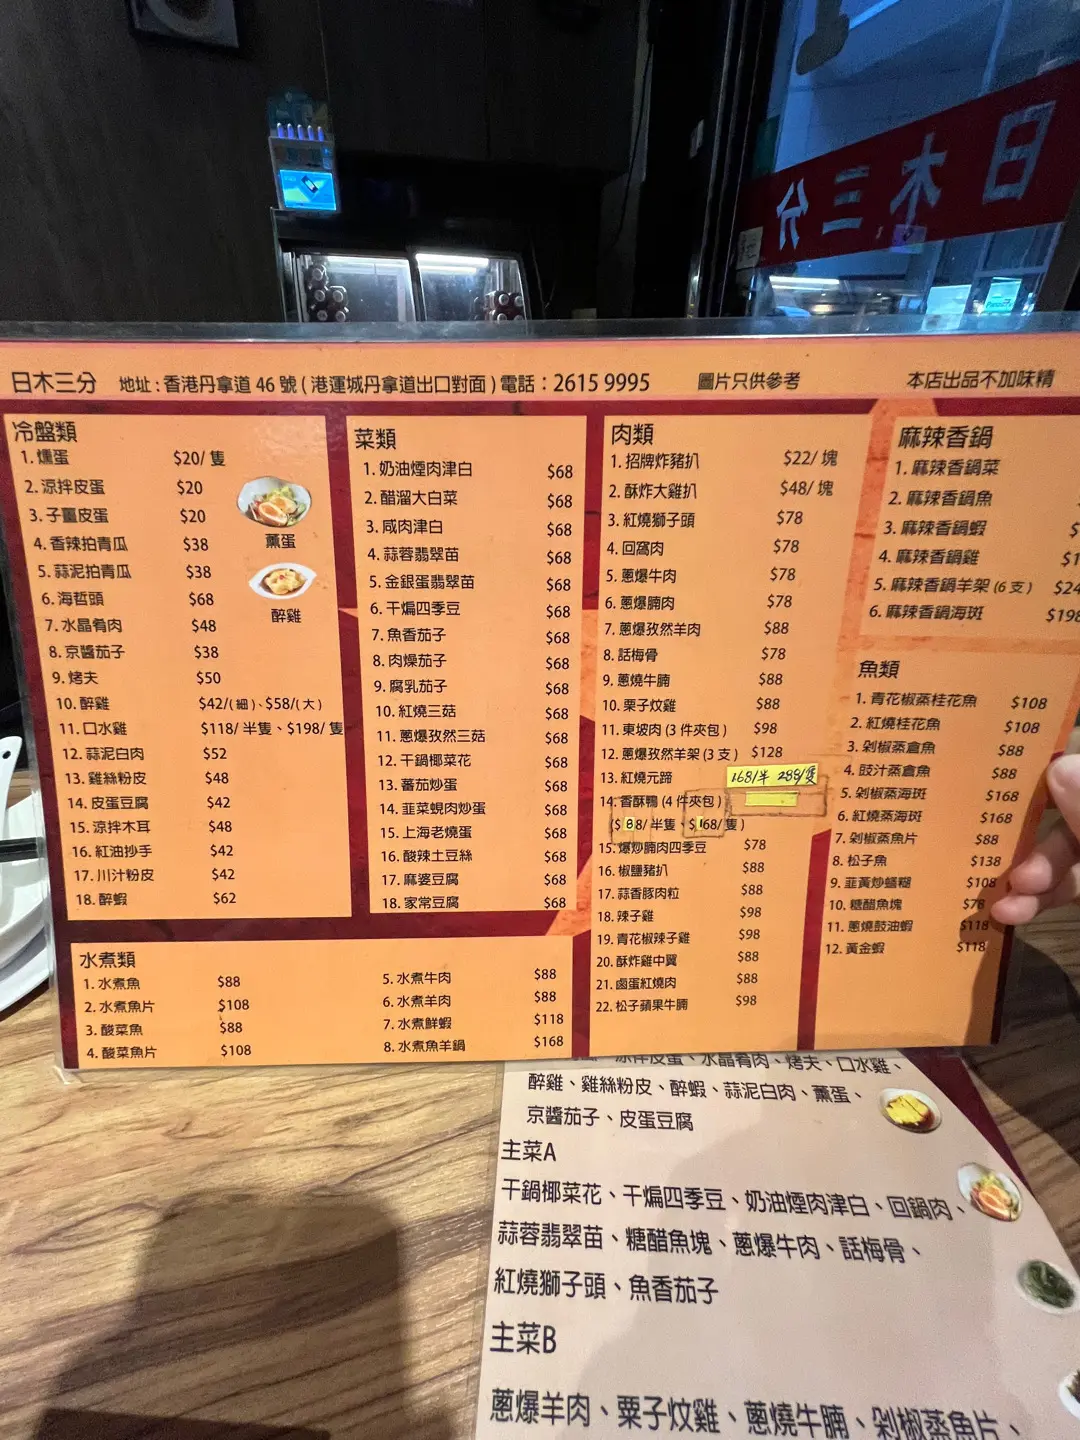 日木三分
日木三分 地址：香港丹拿道 46 號 ( 港運城丹拿道出口對面 ) 電話：2615 9995 圖片只供參考 本店出品不加味精
冷盤類
1. 燻蛋 $20/ 隻
2. 涼拌皮蛋 $20
3. 子薑皮蛋 $20
4. 香辣拍青瓜 $38
5. 蒜泥拍青瓜 $38
6. 海哲頭 $68
7. 水晶肴肉 $48
8. 京醬茄子 $38
9. 烤夫 $50
10. 醉雞 $42/( 細 )、$58/( 大 )
11. 口水雞 $118/ 半隻、$198/ 隻
12. 蒜泥白肉 $52
13. 雞絲粉皮 $48
14. 皮蛋豆腐 $42
15. 涼拌木耳 $48
16. 紅油抄手 $42
17. 川汁粉皮 $42
18. 醉蝦 $62
薰蛋
醉雞
菜類
1. 奶油煙肉津白 $68
2. 醋溜大白菜 $68
3. 咸肉津白 $68
4. 蒜蓉翡翠苗 $68
5. 金銀蛋翡翠苗 $68
6. 干煸四季豆 $68
7. 魚香茄子 $68
8. 肉燥茄子 $68
9. 腐乳茄子 $68
10. 紅燒三菇 $68
11. 蔥爆孜然三菇 $68
12. 干鍋椰菜花 $68
13. 蕃茄炒蛋 $68
14. 韮菜蜆肉炒蛋 $68
15. 上海老燒蛋 $68
16. 酸辣土豆絲 $68
17. 麻婆豆腐 $68
18. 家常豆腐 $68
肉類
1. 招牌炸豬扒 $22/ 塊
2. 酥炸大雞扒 $48/ 塊
3. 紅燒獅子頭 $78
4. 回窩肉 $78
5. 蔥爆牛肉 $78
6. 蔥爆腩肉 $78
7. 蔥爆孜然羊肉 $88
8. 話梅骨 $78
9. 蔥燒牛腩 $88
10. 栗子炆雞 $88
11. 東坡肉 (3 件夾包 ) $98
12. 蔥爆孜然羊架 (3 支 ) $128
13. 紅燒元蹄
168/半 288/隻
14. 香酥鴨 (4 件夾包 )
( $ 88/ 半隻、$168/ 隻 )
15. 爆炒腩肉四季豆 $78
16. 椒鹽豬扒 $88
17. 蒜香豚肉粒 $88
18. 辣子雞 $98
19. 青花椒辣子雞 $98
20. 酥炸雞中翼 $88
21. 鹵蛋紅燒肉 $88
22. 松子蘋果牛腩 $98
麻辣香鍋
1. 麻辣香鍋菜
2. 麻辣香鍋魚
3. 麻辣香鍋蝦 $
4. 麻辣香鍋雞 $1
5. 麻辣香鍋羊架 (6 支 ) $24
6. 麻辣香鍋海斑 $198
魚類
1. 青花椒蒸桂花魚 $108
2. 紅燒桂花魚 $108
3. 剁椒蒸倉魚 $88
4. 豉汁蒸倉魚 $88
5. 剁椒蒸海斑 $168
6. 紅燒蒸海斑 $168
7. 剁椒蒸魚片 $88
8. 松子魚 $138
9. 韮黃炒鱔糊 $108
10. 糖醋魚塊 $78
11. 蔥燒鼓油蝦 $118
12. 黃金蝦 $118
水煮類
1. 水煮魚 $88
2. 水煮魚片 $108
3. 酸菜魚 $88
4. 酸菜魚片 $108
5. 水煮牛肉 $88
6. 水煮羊肉 $88
7. 水煮鮮蝦 $118
8. 水煮魚羊鍋 $168
涼拌皮蛋、水晶肴肉、烤夫、口水雞、
醉雞、雞絲粉皮、醉蝦、蒜泥白肉、薰蛋、
京醬茄子、皮蛋豆腐
主菜A
干鍋椰菜花、干煸四季豆、奶油煙肉津白、回鍋肉、
蒜蓉翡翠苗、糖醋魚塊、蔥爆牛肉、話梅骨、
紅燒獅子頭、魚香茄子
主菜B
蔥爆羊肉、粟子炆雞、蔥燒牛腩、剁椒蒸魚片、